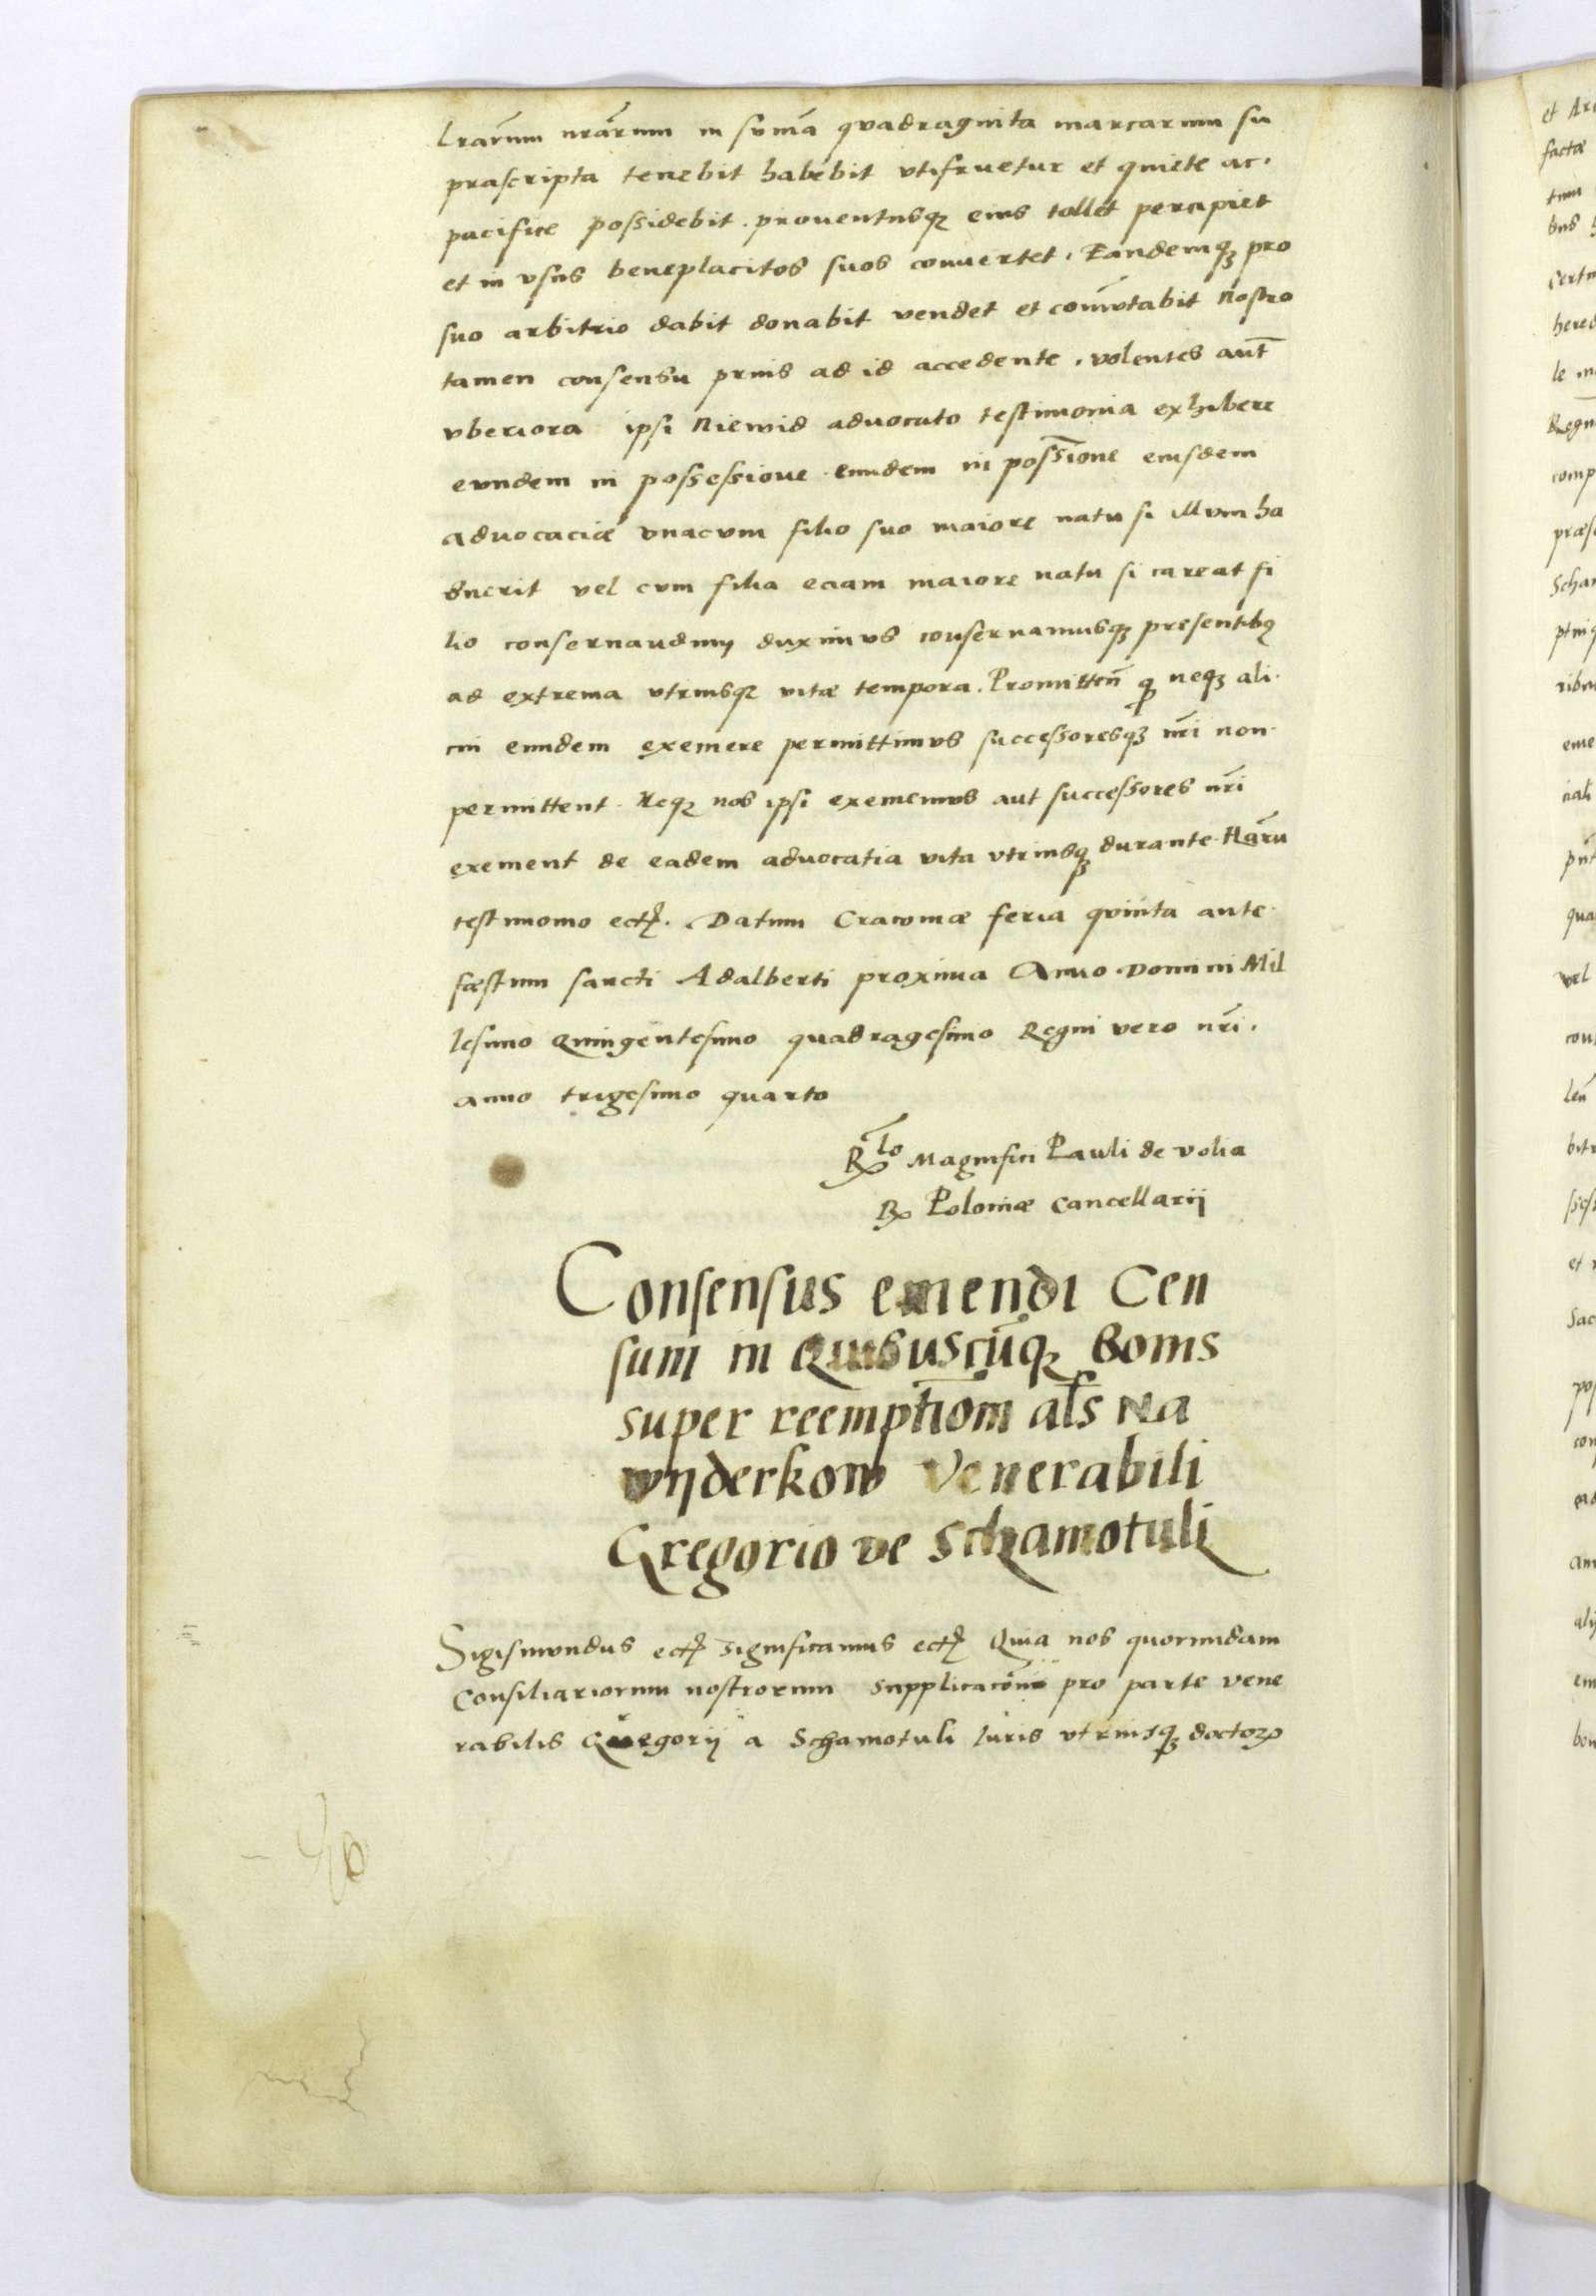 lrarum nrarum in suma quadraginta marcarum su
prascripta tenebit habebit vtifruetur et quiete ac.
pacifice possidebit. prouentusq eius tollet percipiet
et in vsus beneplacitos suos conuertet. Eandemq pro
suo arbitrio dabit donabit vendet et comutabit Nostro
tamen consensu prius ad id accedente. volentes aut
vberiora ipsi Niemid aduocato testimonia exhibere
eundem in possessione eundem in possione eiusdem
aduocaciæ vnacum filio suo maiore natu si illum ha
buerit vel cum filia eciam maiore natu si careat fi
lio conseruandum duximus conseruamusq presentibq
ad extrema vtriusq vitæ tempora. Promitten q neq ali-
cui eundem exemere permittimus successoresq nri non
permittent. Neq nos ipsi exememus aut successores nri
exement de eadem aduocatia vita vtriusq durante. Haru
testimonio ect. Datum Cracouiæ feria quinta ante
fæstum sancti Adalberti proxima Anno Domini Mil
lesimo Quingentesimo quadragesimo Regni vero nri.
anno trigesimo quarto
Rlo Magnifici Pauli de volia
R Poloniæ Cancellarij
Consensus emendi Cen
sum in Quibuscuq Bonis
super reemptiom als Na
wyderkow Venerabili
Gregorio de Schamotuli
Sigismundus ect significamus ect Quia nos quorundam
Consiliariorum nostrorum supplicacone pro parte vene
rabilis Gregorij a Schamotuli Iuris vtriusq doctor